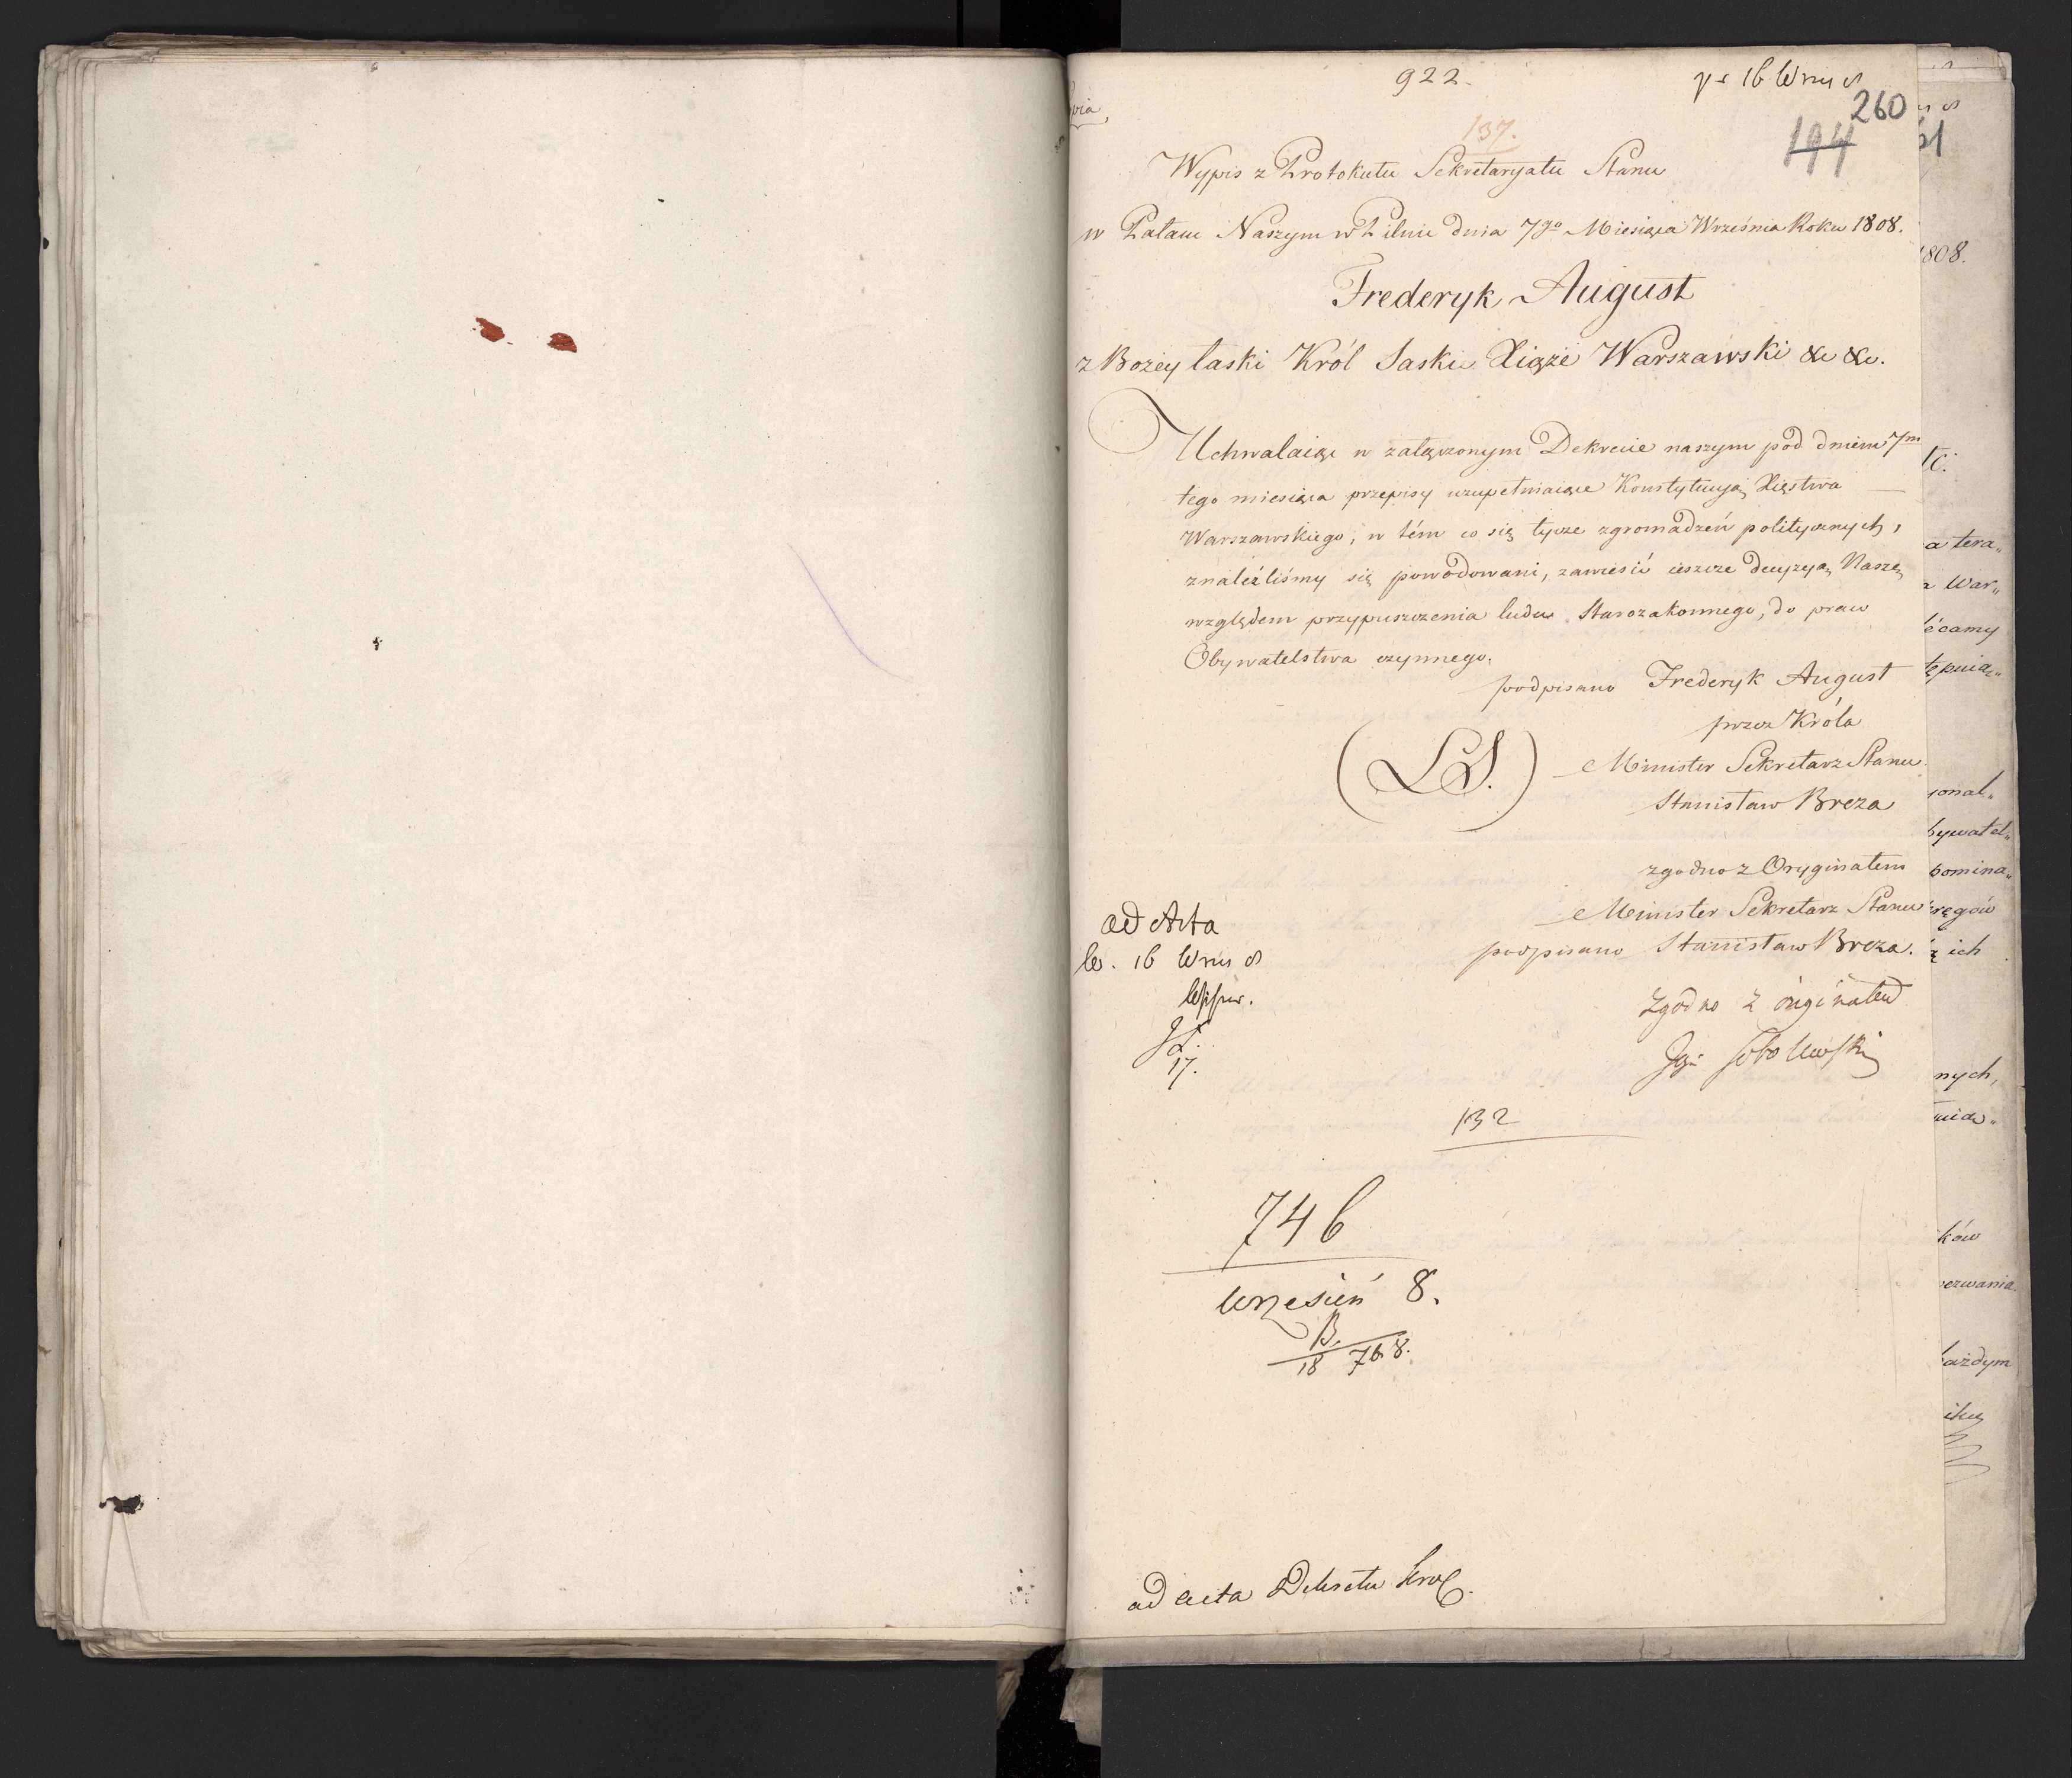 922.
16 Wrzś 8
260
137.
194
Wypis z Protokułu Sekretaryatu Stanu
w Pałacu Naszym w Pilnic dnia 7go Miesiąca Września Roku 1808.
Frederyk August
z Bożey łaski Król Saski Xiąże Warszawski &c &c.
Uchwalaiąc w załączonym Dekrecie naszym pod dniem 7m
tego miesiąca przepisy uzupełniaiące Konstytucyią Xięstwa
Warszawskiego, w tém co się tycze zgromadzeń politycznych,
znaleźliśmy się powodowani, zawiesić ieszcze decyzyą Naszę
względem przypuszczenia ludu Starozakonnego, do praw
Obywatelstwa czynnego.
podpisano Frederyk August
przez Króla
(LS.) Minister Sekretarz Stanu
Stanisław Breza
zgodno z Oryginałem
Minister Sekretarz Stanu
podpisano Stanisław Breza.
ad Acta
16 Wrzś 8
17.
Zgodno z originałem
Ign Sobolewski
132
746
wrzesień 8.
B.
18 768.
ad acta Dekretu Krol.
1808.
a tera„
War„
camy
bywatel„
pomina„
ręgów
ich
nych,
ków
ezwania
ażdym